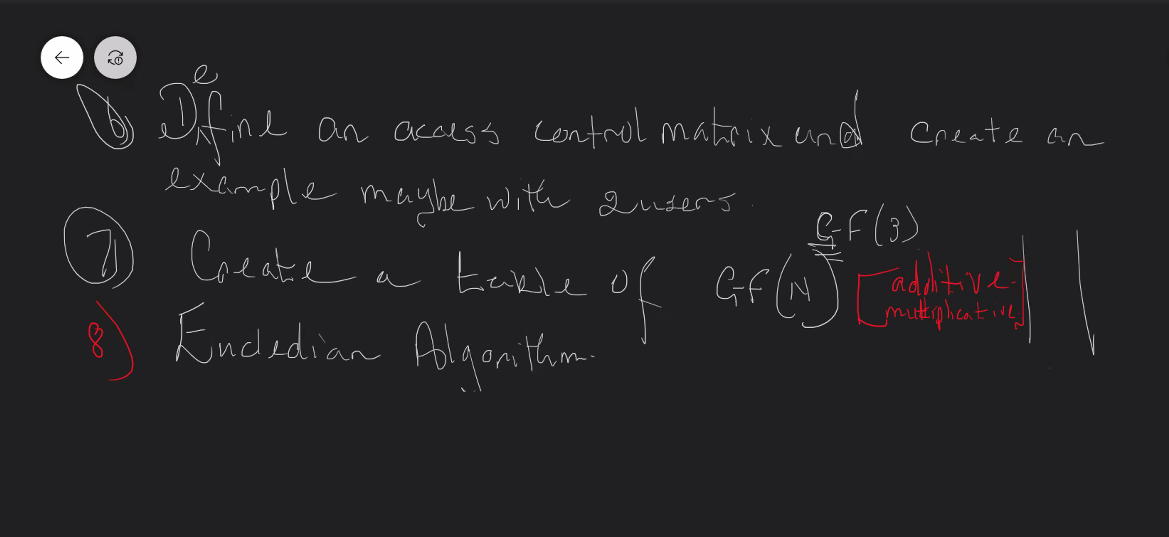 6) Define an access control matrix and create an
example maybe with 2 users.
7) Create a table of GF(N) GF(3) [additive
multiplicative]
8) Eucledian Algorithm.